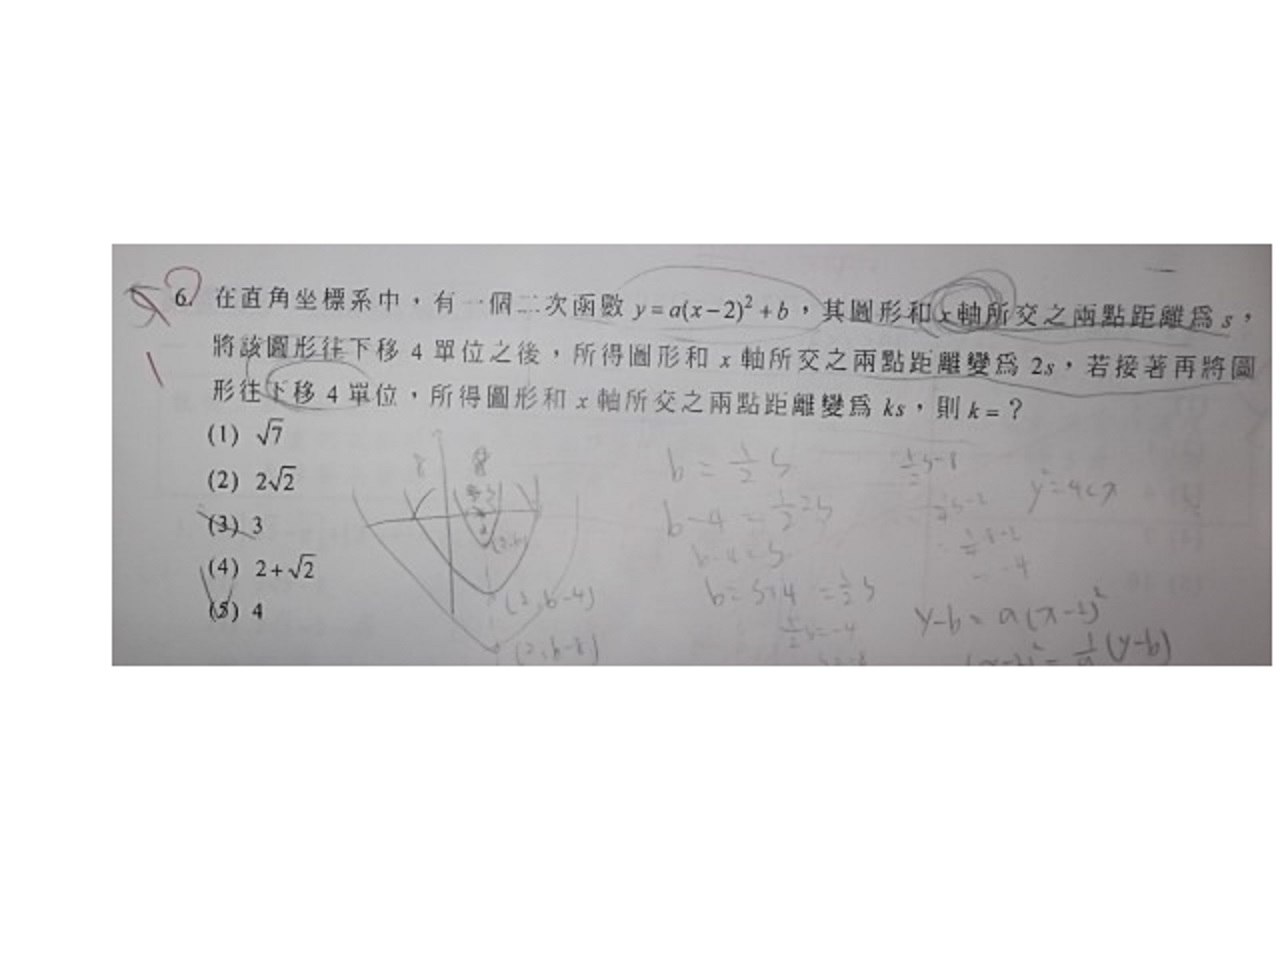 6. 在直角坐標系中，有一個二次函數 y=a(x-2)²+b，其圖形和x軸所交之兩點距離為 s，
將該圖形往下移 4 單位之後，所得圖形和 x 軸所交之兩點距離變為 2s，若接著再將圖
形往下移 4 單位，所得圖形和 x 軸所交之兩點距離變為 ks，則 k=？
(1) √7
(2) 2√2
(3) 3
(4) 2+√2
(5) 4
b = 1/2 s
b-4 =
b-4=s
b=s+4 = 1/2 s
(2, b-4)
(2, b-8)
1/2 s-8
y²=4cx
-4
y-b = a(x-2)²
1/a (y-b)